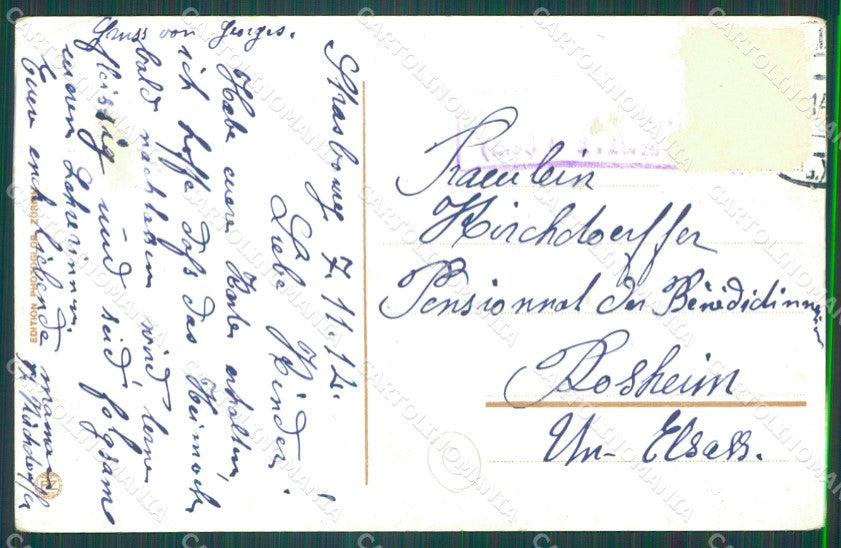 Gruss von Georges.
Strasbourg 7.11.12.
Liebe Kinder!
Habe euere Karte erhalten,
ich hoffe daß das Heimweh
bald nachlassen wird, lerne
fleissig und seid folgsam
eueren Lehrerinnen
Euere euch liebende mama
Kirchdörffer
Fraeulein
Kirchdoerffer
Pensionnat der Bénédictinnen
Rosheim
Un- Elsass.
EDITION PHOTOGLOB ZÜRICH
CARTOLINOMANIA